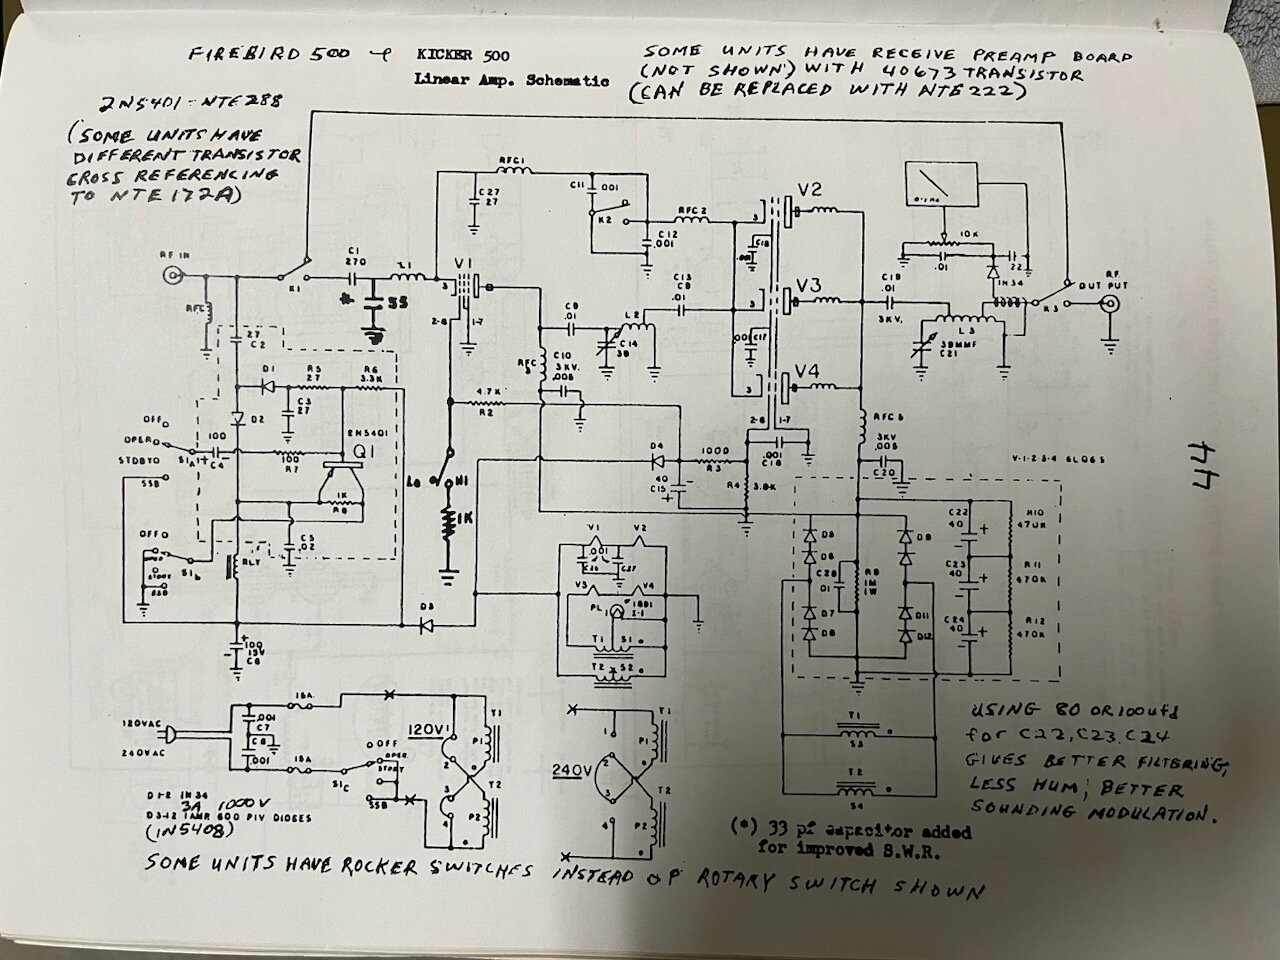 FIREBIRD 500 & KICKER 500
Linear Amp. Schematic
SOME UNITS HAVE RECEIVE PREAMP BOARD
(NOT SHOWN) WITH 40673 TRANSISTOR
(CAN BE REPLACED WITH NTE222)
2N5401 - NTE288
(SOME UNITS HAVE
DIFFERENT TRANSISTOR
CROSS REFERENCING
TO NTE172A)
RFC1
C11 .001
C27
27
K2
RFC2
V2
C12
.001
3
C18
0-1 MA
10K
.01
22
1N34
RF IN
C1
270
L1
K1
V1
3
* 33
RFC
2-6
1-7
C9
.01
C13
.01
L2
C14
38
3
V3
C17
C19
.01
3KV.
K3
RF
OUT PUT
L3
38MMF
C21
27
C2
D1
R5
27
R6
3.3K
C3
27
D2
RFC
C10
3KV.
.005
3
V4
4.7K
R2
2-6
1-7
RFC
3KV
.005
C20
OFF
OPER
STDBY
SSB
S1A
100
C4
100
R7
2N5401
Q1
1K
R8
LO
HI
1K
D4
1000
R3
40
C15
R4
3.8K
.001
C16
V-1-2-3-4 6LQ6S
44
OFF
STDBY
SSB
S1b
RLY
C5
.02
V1
V2
.001
C26
C27
V3
V4
PL
1
T1
S1
T2
S2
D5
D6
D7
D8
.01
R9
1M
1W
D9
D11
D12
C22
40
C23
40
C24
40
R10
R11
470K
R12
470K
D3
100
15V
C6
120VAC
240VAC
.001
C7
C8
.001
15A
15A
OFF
OPER.
STDBY
SSB
S1C
120V
1
2
3
4
T1
P1
T2
P2
240V
1
2
3
4
T1
P1
T2
P2
T1
S3
T2
S4
USING 80 OR 100ufd
for C22, C23, C24
GIVES BETTER FILTERING,
LESS HUM; BETTER
SOUNDING MODULATION.
D1-2 1N34
3A 1000V
D3-12 1AMP 600 PIV DIODES
(1N5408)
(*) 33 pf capacitor added
for improved S.W.R.
SOME UNITS HAVE ROCKER SWITCHES INSTEAD OF ROTARY SWITCH SHOWN